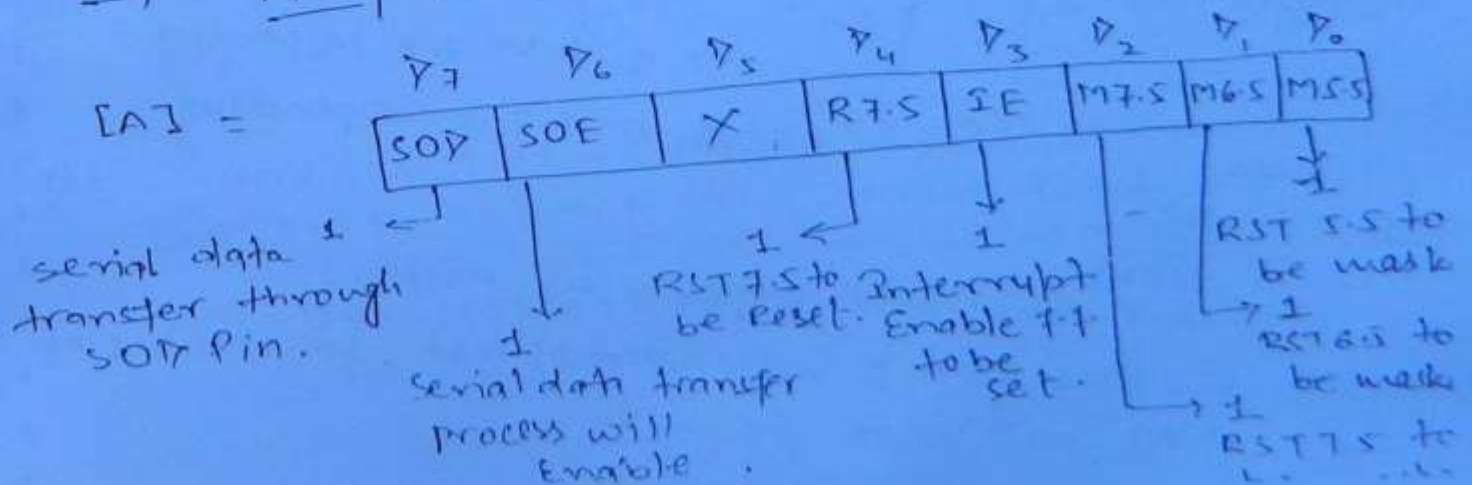 D7 D6 D5 D4 D3 D2 D1 D0
[A] = SOD SOE X R7.5 IE M7.5 M6.5 M5.5
1 1 1 1
serial data
transfer through
SOD Pin.
1
serial data transfer
process will
Enable .
RST 7.5 to
be Reset.
Interrupt
Enable f.f.
to be
set .
RST 5.5 to
be mask
1
RST 6.5 to
be mask
1
RST 7.5 to